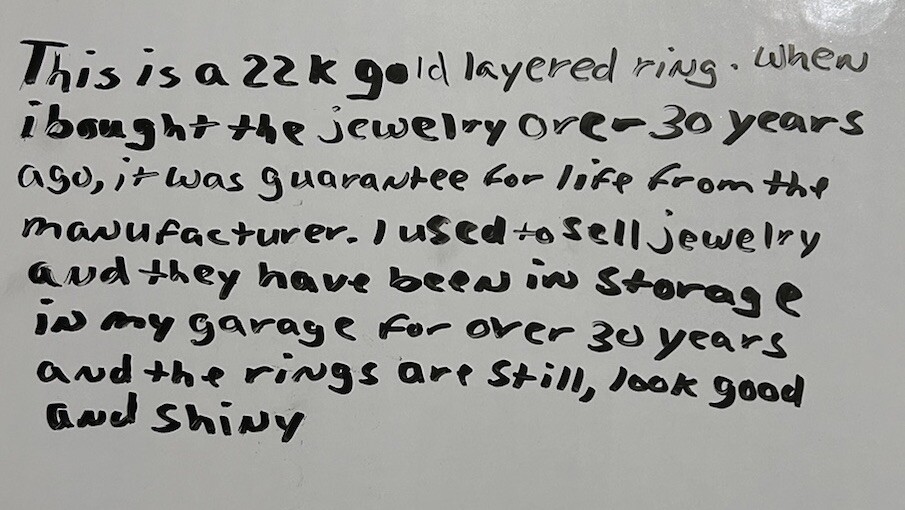 This is a 22k gold layered ring. When
i bought the jewelry over 30 years
ago, it was guarantee for life from the
manufacturer. I used to sell jewelry
and they have been in storage
in my garage for over 30 years
and the rings are still, look good
and shiny